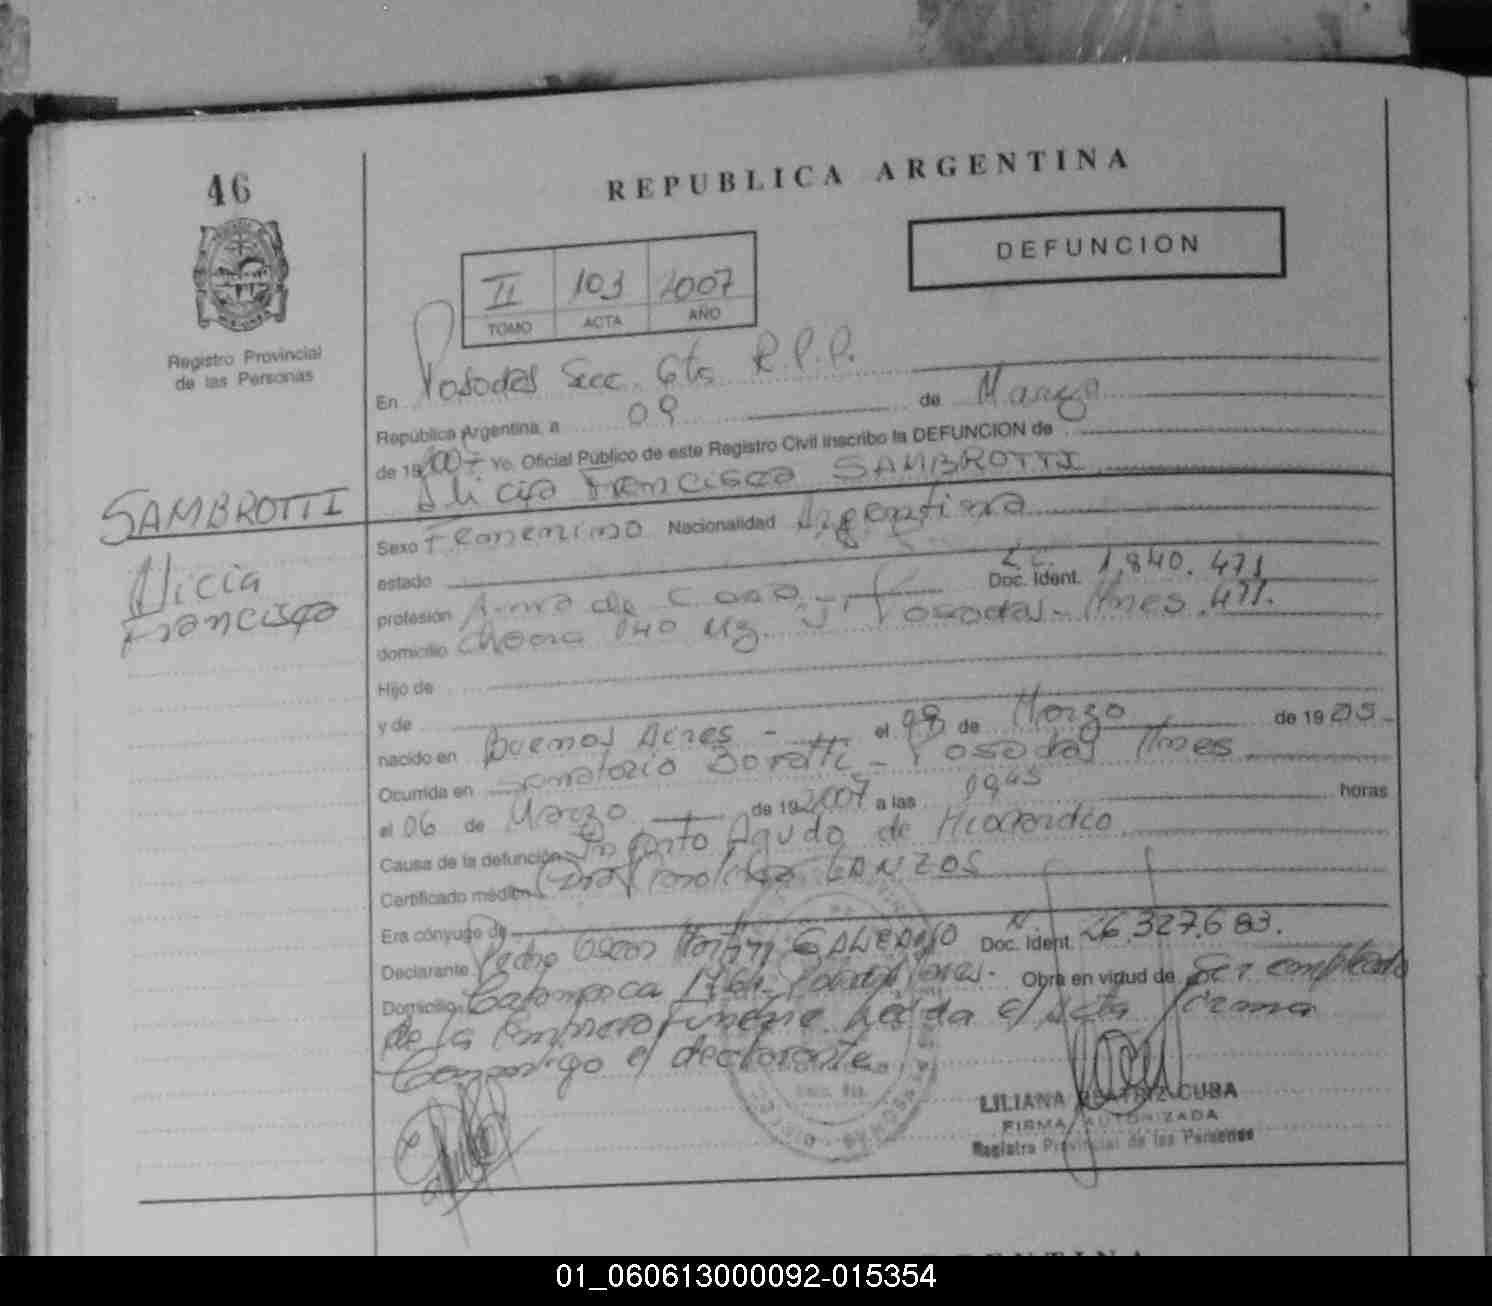 46
REPUBLICA ARGENTINA
DEFUNCION
II 103 2007
TOMO ACTA AÑO
Registro Provincial
de las Personas
En Posadas Secc. 6ta R.P.P.
República Argentina, a 09 de Marzo
de 19 2007 Yo, Oficial Público de este Registro Civil inscribo la DEFUNCION de
Alicia Francisca SAMBROTTI
SAMBROTTI
Alicia
Francisca
Sexo Femenino Nacionalidad Argentina
estado L.C. Doc. Ident. 1.840.471
profesión Ama de Casa
domicilio Chacra 140 Mz. Posadas - Mnes. 471.
Hijo de
y de
nacido en Buenos Aires - el 08 de Marzo de 19 05 -
Ocurrida en Sanatorio Boratti - Posadas Mnes
el 06 de Marzo de 19 2007 a las 09 45 horas
Causa de la defunción Infarto Agudo de Miocardio
Certificado médico LANZOS
Era cónyuge de
Declarante Pedro Oscar Martin GALEANO Doc. Ident. 26.327.683.
Domicilio Catamarca Posadas Mnes. Obra en virtud de Ser empleado
de la Empresa Funebre Leída el Acta Firma
Conmigo el declarante
LILIANA BEATRIZ CUBA
FIRMA AUTORIZADA
Registro Provincial de las Personas
01_060613000092-015354